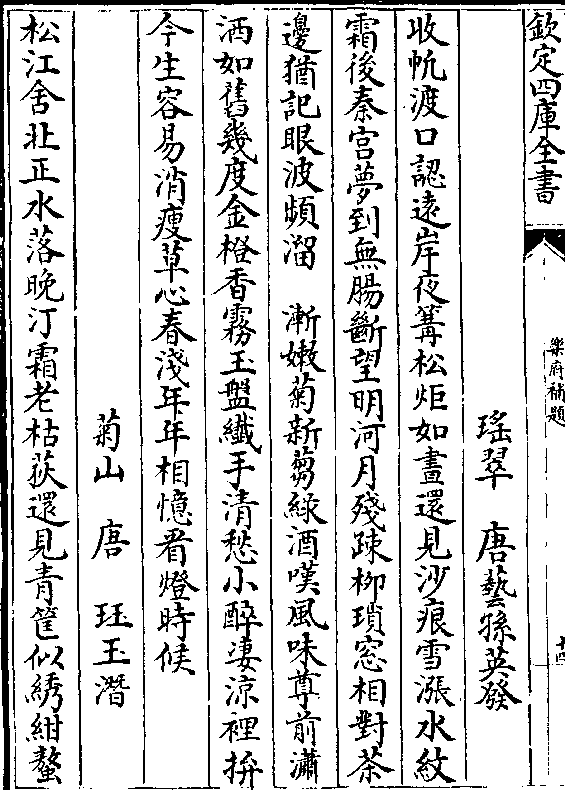 欽定四庫全書
樂府補題
十四
瑤翠　唐藝孫英發
收帆渡口認遠岸夜篝松炬如晝還見沙痕雪漲水紋
霜後秦宫夢到無腸斷望明河月殘疎柳瑣窓相對茶
邊猶記眼波頻溜　漸嫩菊新蒭綠酒嘆風味尊前瀟
洒如舊幾度金橙香霧玉盤纖手清愁小醉凄涼裡拚
今生容易消瘦草心春淺年年相憶看燈時候
菊山　唐　珏玉潛
松江舍北正水落晚汀霜老枯荻還見青筐似綉紺螯